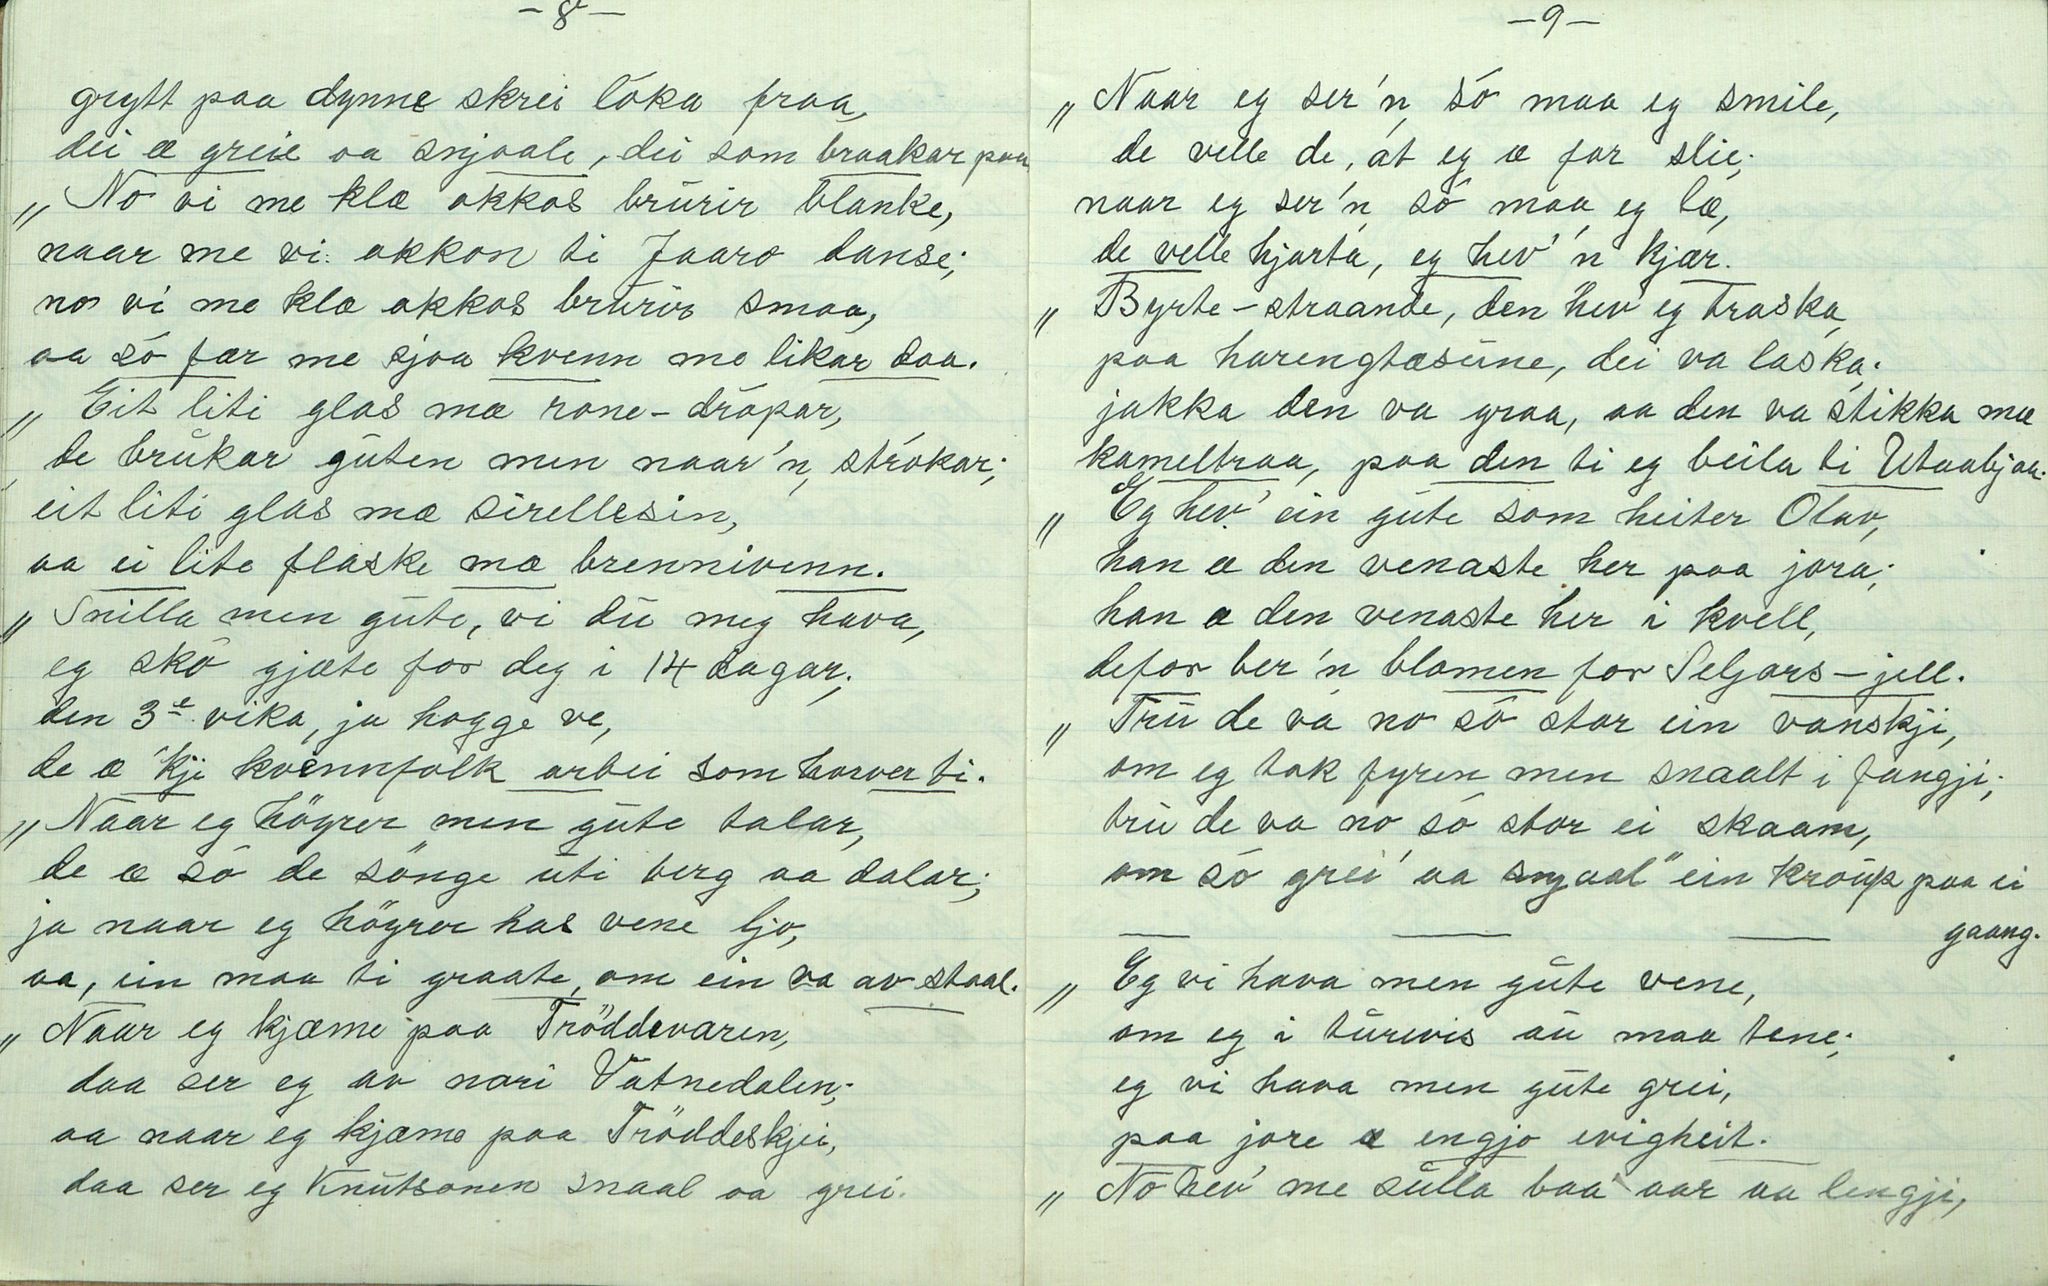 - 8 -
grytt paa dynne skrei lóka fraa,
dei æ greie aa snjaale, dei som braakar paa.
„ No vi me klæ okkos brúrir blanke,
naar me vi okkon ti Jaaro danse;
no vi me klæ okkos brúrir smaa,
aa só fær me sjaa kvenn me likar daa.
„ Eit liti glas mæ rone-drópar,
de brúkar gúten men naar'n strókar;
eit liti glas mæ sirellesin,
aa ei lite flaske mæ brennivenn.
„ Snilla men gúte, vi dú meg hava,
eg skó gjæte for deg i 14 dagar;
den 3e vika, ja hogge ve,
de æ 'kji kvennfolk arbei som horver ti.
„ Naar eg höyrer men gúte talar,
de æ só de sönge úti berg aa dalar;
ja naar eg höyrer has vene ljo,
aa, ein maa ti graate, om ein va av staal.
„ Naar eg kjæme paa Tröddevaren,
daa ser eg av nori Vatnedalen;
aa naar eg kjæme paa Tröddeskjei,
daa ser eg Knútsonen snaal aa grei.
- 9 -
„ Naar eg ser'n, só maa eg smile,
de velle de, at eg æ for slie;
naar eg ser'n, só maa eg læ,
de velle hjarta, eg hev' 'n kjær.
„ Byrte-straande, den hev eg traska,
paa harengtæsúne, dei va laska.
jakka den va graa, aa den va stikka mæ
kameltraa, paa den ti eg beila ti Utaabjaa.
„ Eg hev' ein gúte som heiter Olav,
han æ den venaste her paa jora;
han æ den venaste her i kvell,
defor ber'n blomen for Seljors-jell.
„ Trú de va no só stor ein vanskji,
om eg tok fyren men snaalt i fangji;
trú de va no só stor ei skaam,
om só grei' aa snjaal" ein kroúp paa ei
gaang.
„ Eg vi hava men gúte vene,
om eg i túrevis aú maa tene;
eg vi hava men gúte grei,
paa jore æ engjo evigheit.
„ No hev' me súlla baa' aar aa lengji,